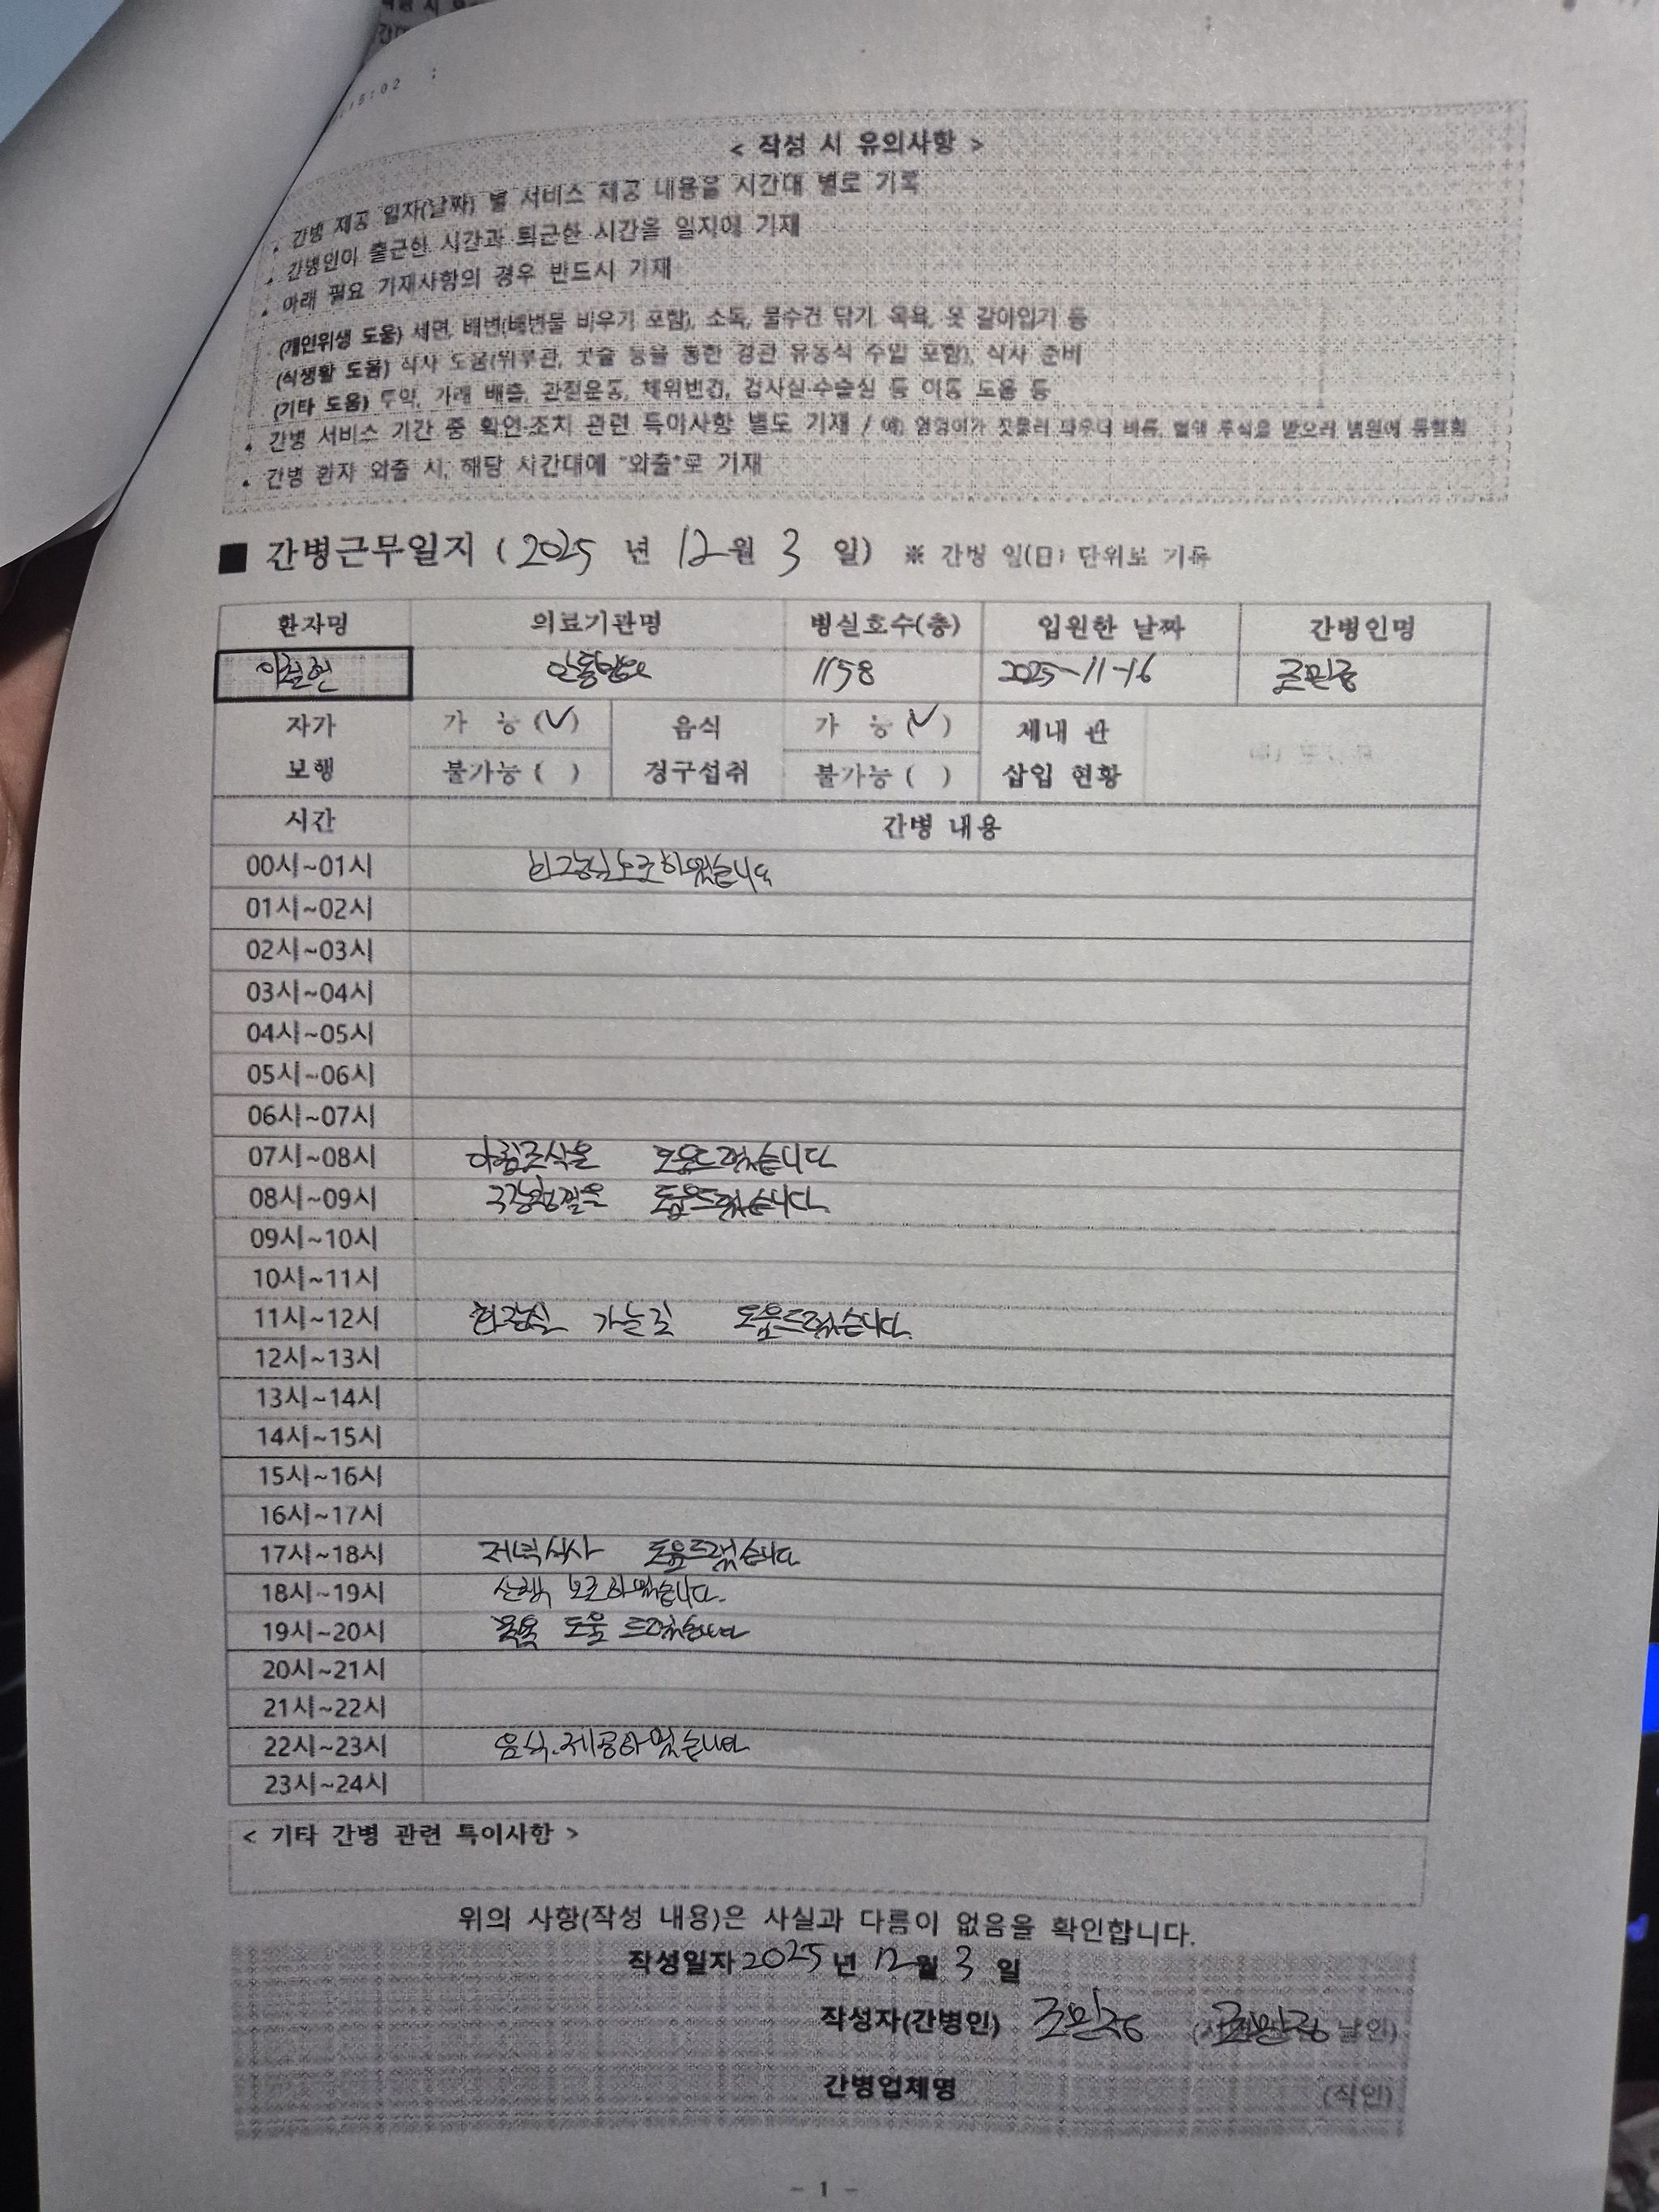 < 작성 시 유의사항 >
• 간병 제공 일자(날짜) 별 서비스 제공 내용을 시간대 별로 기록
• 간병인이 출근한 시간과 퇴근한 시간을 일지에 기재
• 아래 필요 기재사항의 경우 반드시 기재
(개인위생 도움) 세면, 배변(배변물 비우기 포함), 소독, 물수건 닦기, 목욕, 옷 갈아입기 등
(식생활 도움) 식사 도움(위루관, 콧줄 등을 통한 경관 유동식 주입 포함), 식사 준비
(기타 도움) 투약, 가래 배출, 관절운동, 체위변경, 검사실·수술실 등 이동 도움 등
• 간병 서비스 기간 중 확인·조치 관련 특이사항 별도 기재 / 예) 엉덩이가 짓물러 파우더 바름, 혈액 투석을 받으러 병원에 동행함
• 간병 환자 외출 시, 해당 시간대에 "외출"로 기재
■ 간병근무일지 ( 2025 년 12월 3 일) ※ 간병 일(日) 단위로 기록
환자명 의료기관명 병실호수(층) 입원한 날짜 간병인명
이철헌 안동병원 1158 2025-11-16
자가 가 능 (✓) 음식 가 능 (✓) 체내 관
보행 불가능 ( ) 경구섭취 불가능 ( ) 삽입 현황
시간 간병 내용
00시~01시 화장실보조하였습니다
01시~02시
02시~03시
03시~04시
04시~05시
05시~06시
06시~07시
07시~08시 아침조식을 도움드렸습니다
08시~09시 구강청결을 도움드렸습니다
09시~10시
10시~11시
11시~12시 화장실 가는길 도움드렸습니다.
12시~13시
13시~14시
14시~15시
15시~16시
16시~17시
17시~18시 저녁식사 도움드렸습니다
18시~19시 산책 보조하였습니다.
19시~20시 목욕 도움 드렸습니다
20시~21시
21시~22시
22시~23시 음식.제공하였습니다
23시~24시
< 기타 간병 관련 특이사항 >
위의 사항(작성 내용)은 사실과 다름이 없음을 확인합니다.
작성일자 2025 년 12월 3 일
작성자(간병인) 날인)
간병업체명 (직인)
- 1 -